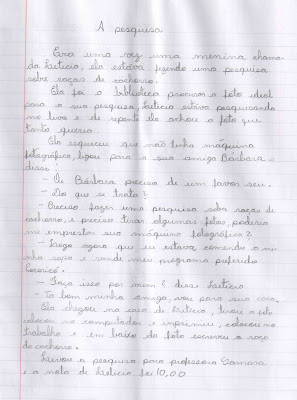 A pesquisa
Era uma vez uma menina chama-
da Leticia, ela estava fazendo uma pesquisa
sobre raças de cachorro.
Ela foi a biblioteca procurar a foto ideal
para a sua pesquisa, Leticia estava pesquisando
no livro e de repente ela achou a foto que
tanto queria.
Ela esqueceu que não tinha máquina
fotográfica, ligou para a sua amiga Bárbara e
disse:
- Oi Bárbara preciso de um favor seu.
- Do que se trata?
- Preciso fazer uma pesquisa sobre raças de
cachorro, e preciso tirar algumas fotos, poderia
me emprestar sua máquina fotográfica?
- Logo agora que eu estava comendo a mi
nha sopa e vendo meu programa preferido
Cocoricó.
- Faça isso por mim? disse Leticia
- Tá bom minha amiga, vou para sua casa.
Ela chegou na casa de Leticia, tirou a foto
colocou no computador e imprimiu, colocou no
trabalho e em baixo da foto escreveu a raça
do cachorro.
Levou a pesquisa para professora Samara
e a nota de Leticia foi 10,00